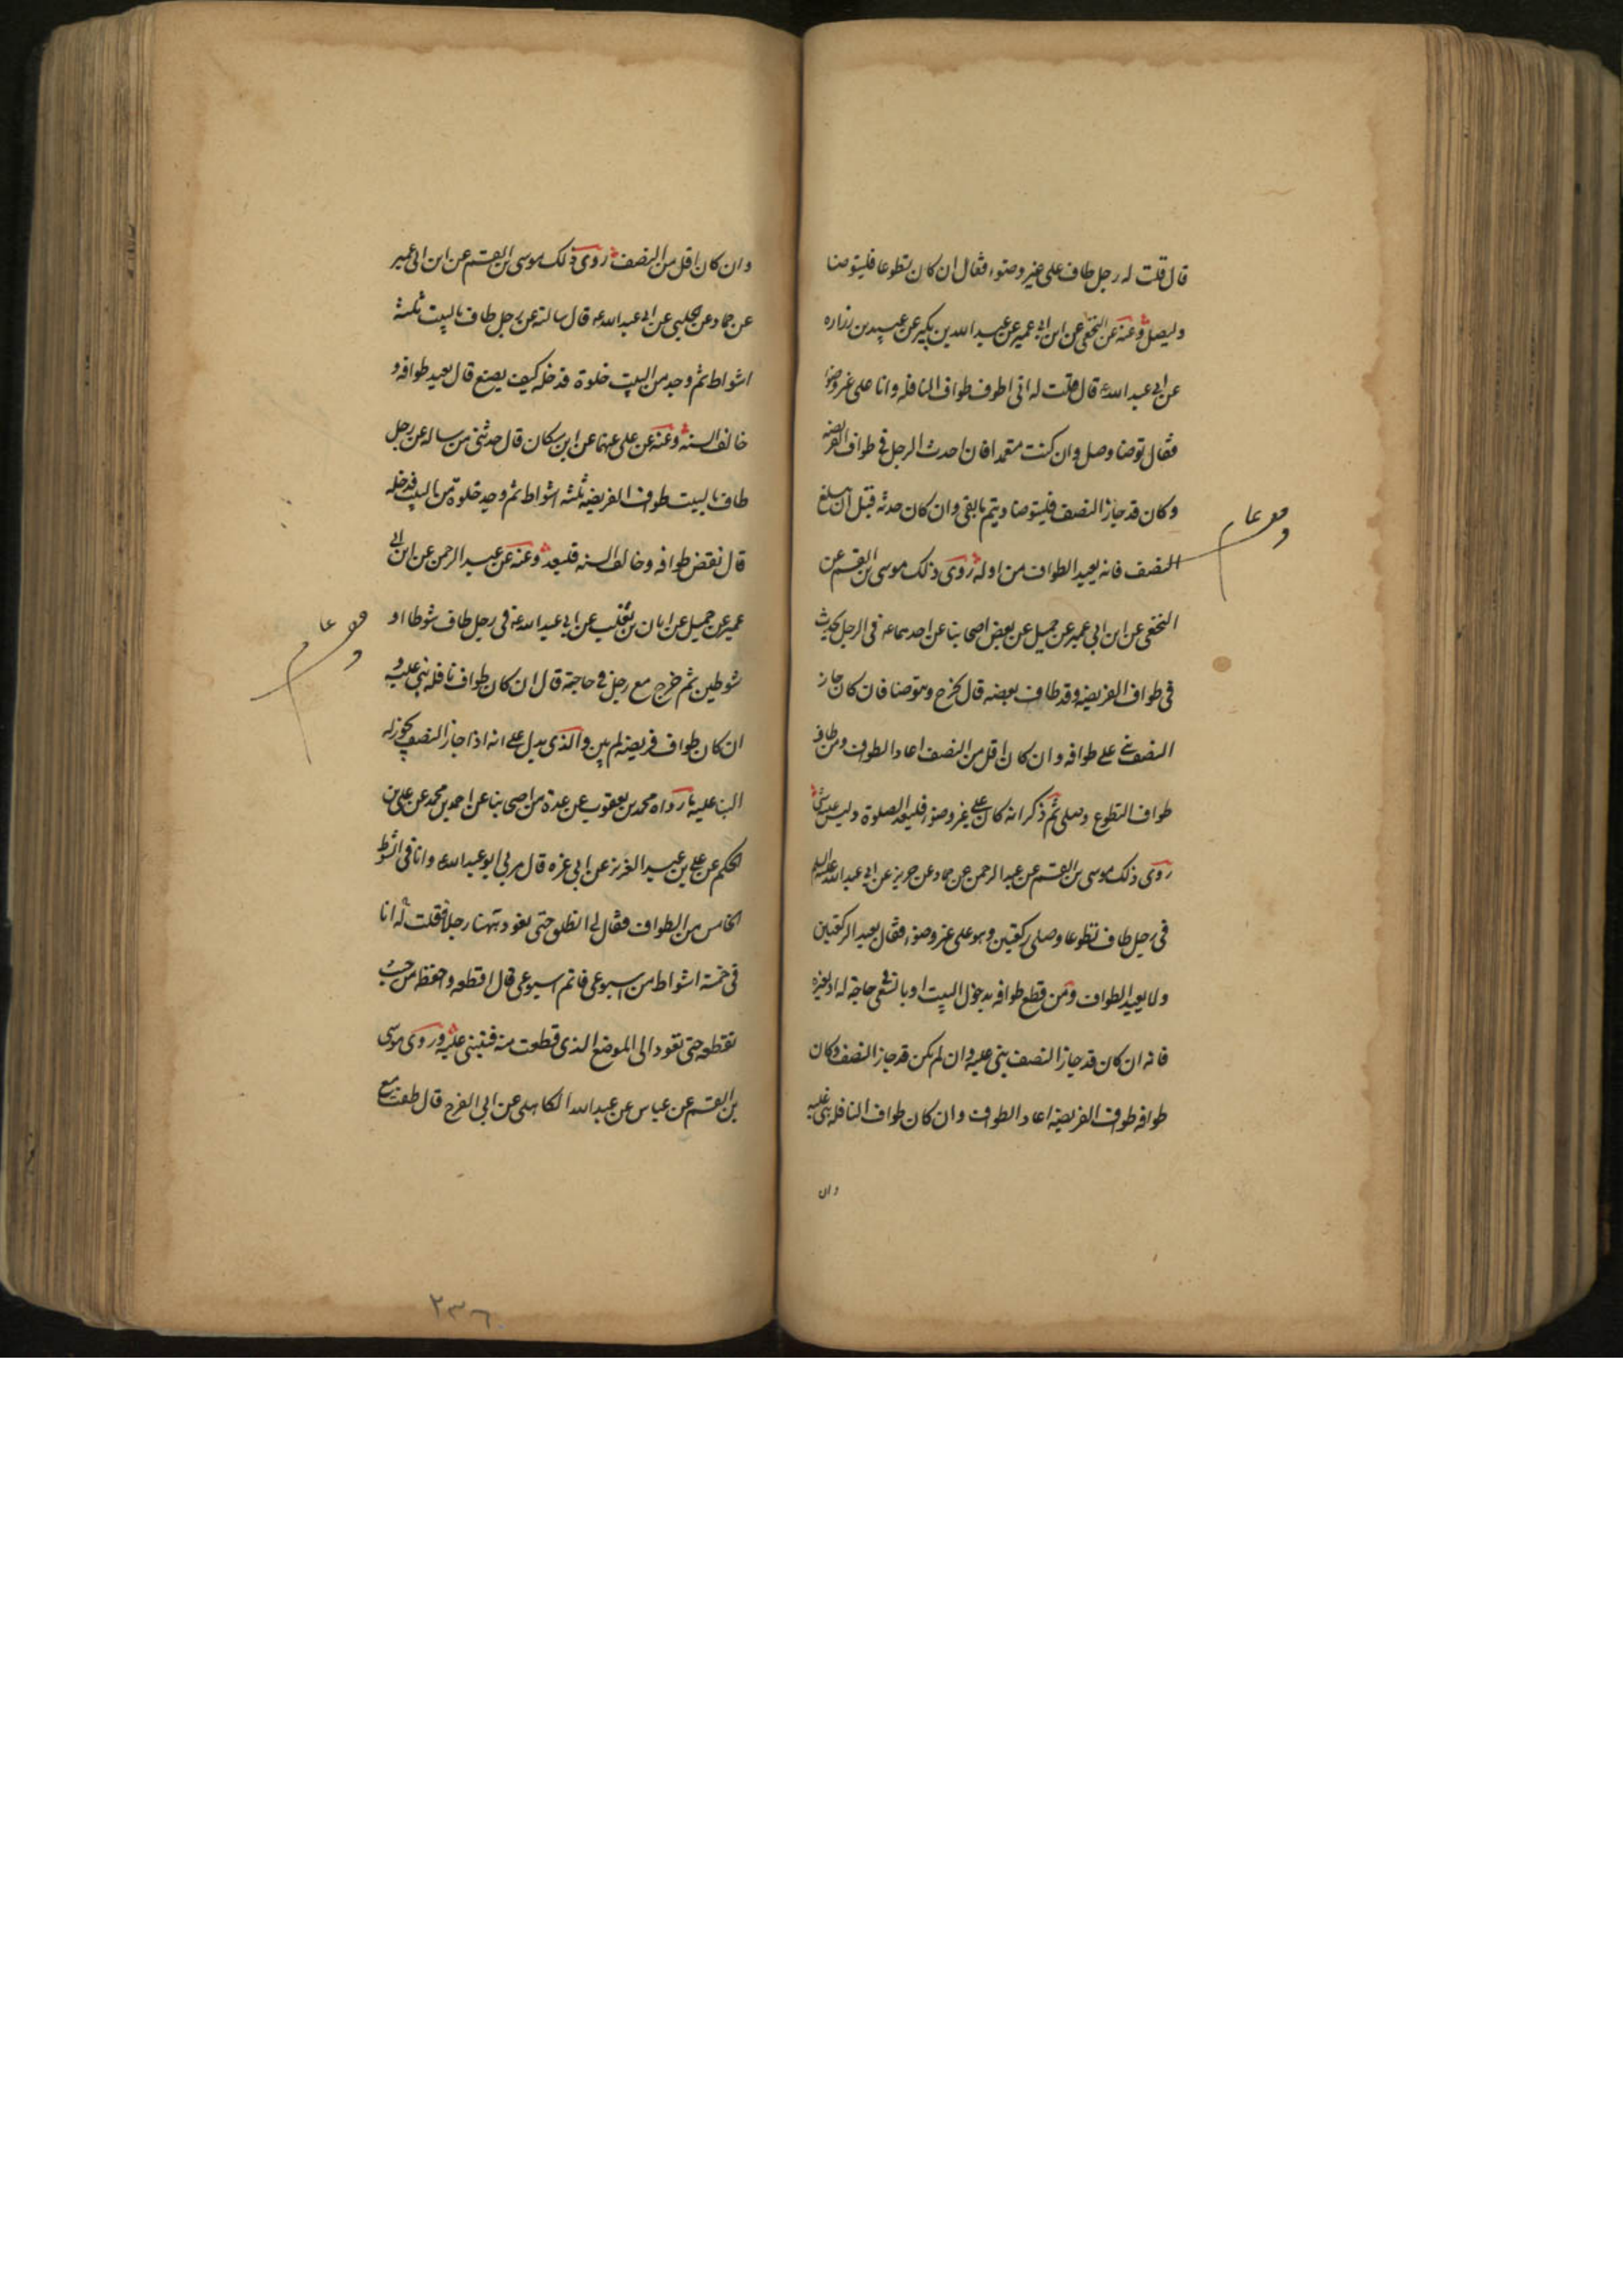 قال قلت له رجل طاف على غير وضوء فقال ان كان تطوعا فليتوضا
وليصل وعنه عن النخعى عن ابن ابى عمير عن عبد الله بن بكير عن عبيد بن زراره
عن ابى عبد الله ع قال قلت له انى اطوف طواف النافله وانا على غير وضوء
فقال توضا وصل وان كنت متعمدا فان احدث الرجل فى طواف الفريضه
وكان قد جاز النصف فليتوضا ويتم ما بقى وان كان حدثه قبل ان يبلغ
النصف فانه يعيد الطواف من اوله روى ذلك موسى بن القسم عن
النخعى عن ابن ابى عمير عن جميل عن بعض اصحابنا عن احدهما ع فى الرجل يحدث
فى طواف الفريضه وقد طاف بعضه قال يخرج ويتوضا فان كان جاز
النصف بنى على طوافه وان كان اقل من النصف اعاد الطواف ومن طاف
طواف التطوع وصلى ثم ذكر انه كان على غير وضوء فليعد الصلوة وليس عليه شى
روى ذلك موسى بن القسم عن عبد الرحمن عن حماد عن حريز عن ابى عبد الله عليه السلم
فى رجل طاف تطوعا وصلى ركعتين وهو على غير وضوء فقال يعيد الركعتين
ولا يعيد الطواف ومن قطع طوافه بدخول البيت او بالسعى فى حاجة له او لغيره
فانه ان كان قد جاز النصف بنى عليه وان لم يكن قد جاز النصف وكان
طوافه طواف الفريضه اعاد الطواف وان كان طواف النافله بنى عليه
وان
وان كان اقل من النصف روى ذلك موسى بن القسم عن ابن ابى عمير
عن حماد عن الحلبى عن ابى عبد الله ع قال سالته عن رجل طاف بالبيت ثلثة
اشواط ثم وجد من البيت خلوة فدخله كيف يصنع قال يعيد طوافه و
خالف السنه وعنه عن على عنهما عن ابن مسكان قال حدثنى من ساله عن رجل
طاف بالبيت طواف الفريضه ثلثه اشواط ثم وجد خلوة من البيت فدخله
قال نقض طوافه وخالف السنه فليعد وعنه عن عبد الرحمن عن ابن ابى
عمير عن جميل عن ابان بن تغلب عن ابى عبد الله ع فى رجل طاف شوطا او
شوطين ثم خرج مع رجل فى حاجة قال ان كان طواف نافله بنى عليه و
ان كان طواف فريضه لم يبن والذى يدل على انه اذا جاز النصف يجوز له
البنا عليه ما رواه محمد بن يعقوب عن عدة من اصحابنا عن احمد بن محمد عن على بن
الحكم عن على بن عبد العزيز عن ابى غره قال مر بى ابو عبد الله ع وانا فى الشوط
الخامس من الطواف فقال لى انطلق حتى نعود ههنا رجلا فقلت له انا
فى خمسة اشواط من اسبوعى فاتم اسبوعى قال اقطعه واحفظه من حيث
تقطعه حتى تعود الى الموضع الذى قطعت منه فتبنى عليه وروى موسى
بن القسم عن عباس عن عبد الله الكاهلى عن ابى الفرج قال طفت مع
٢٣٦